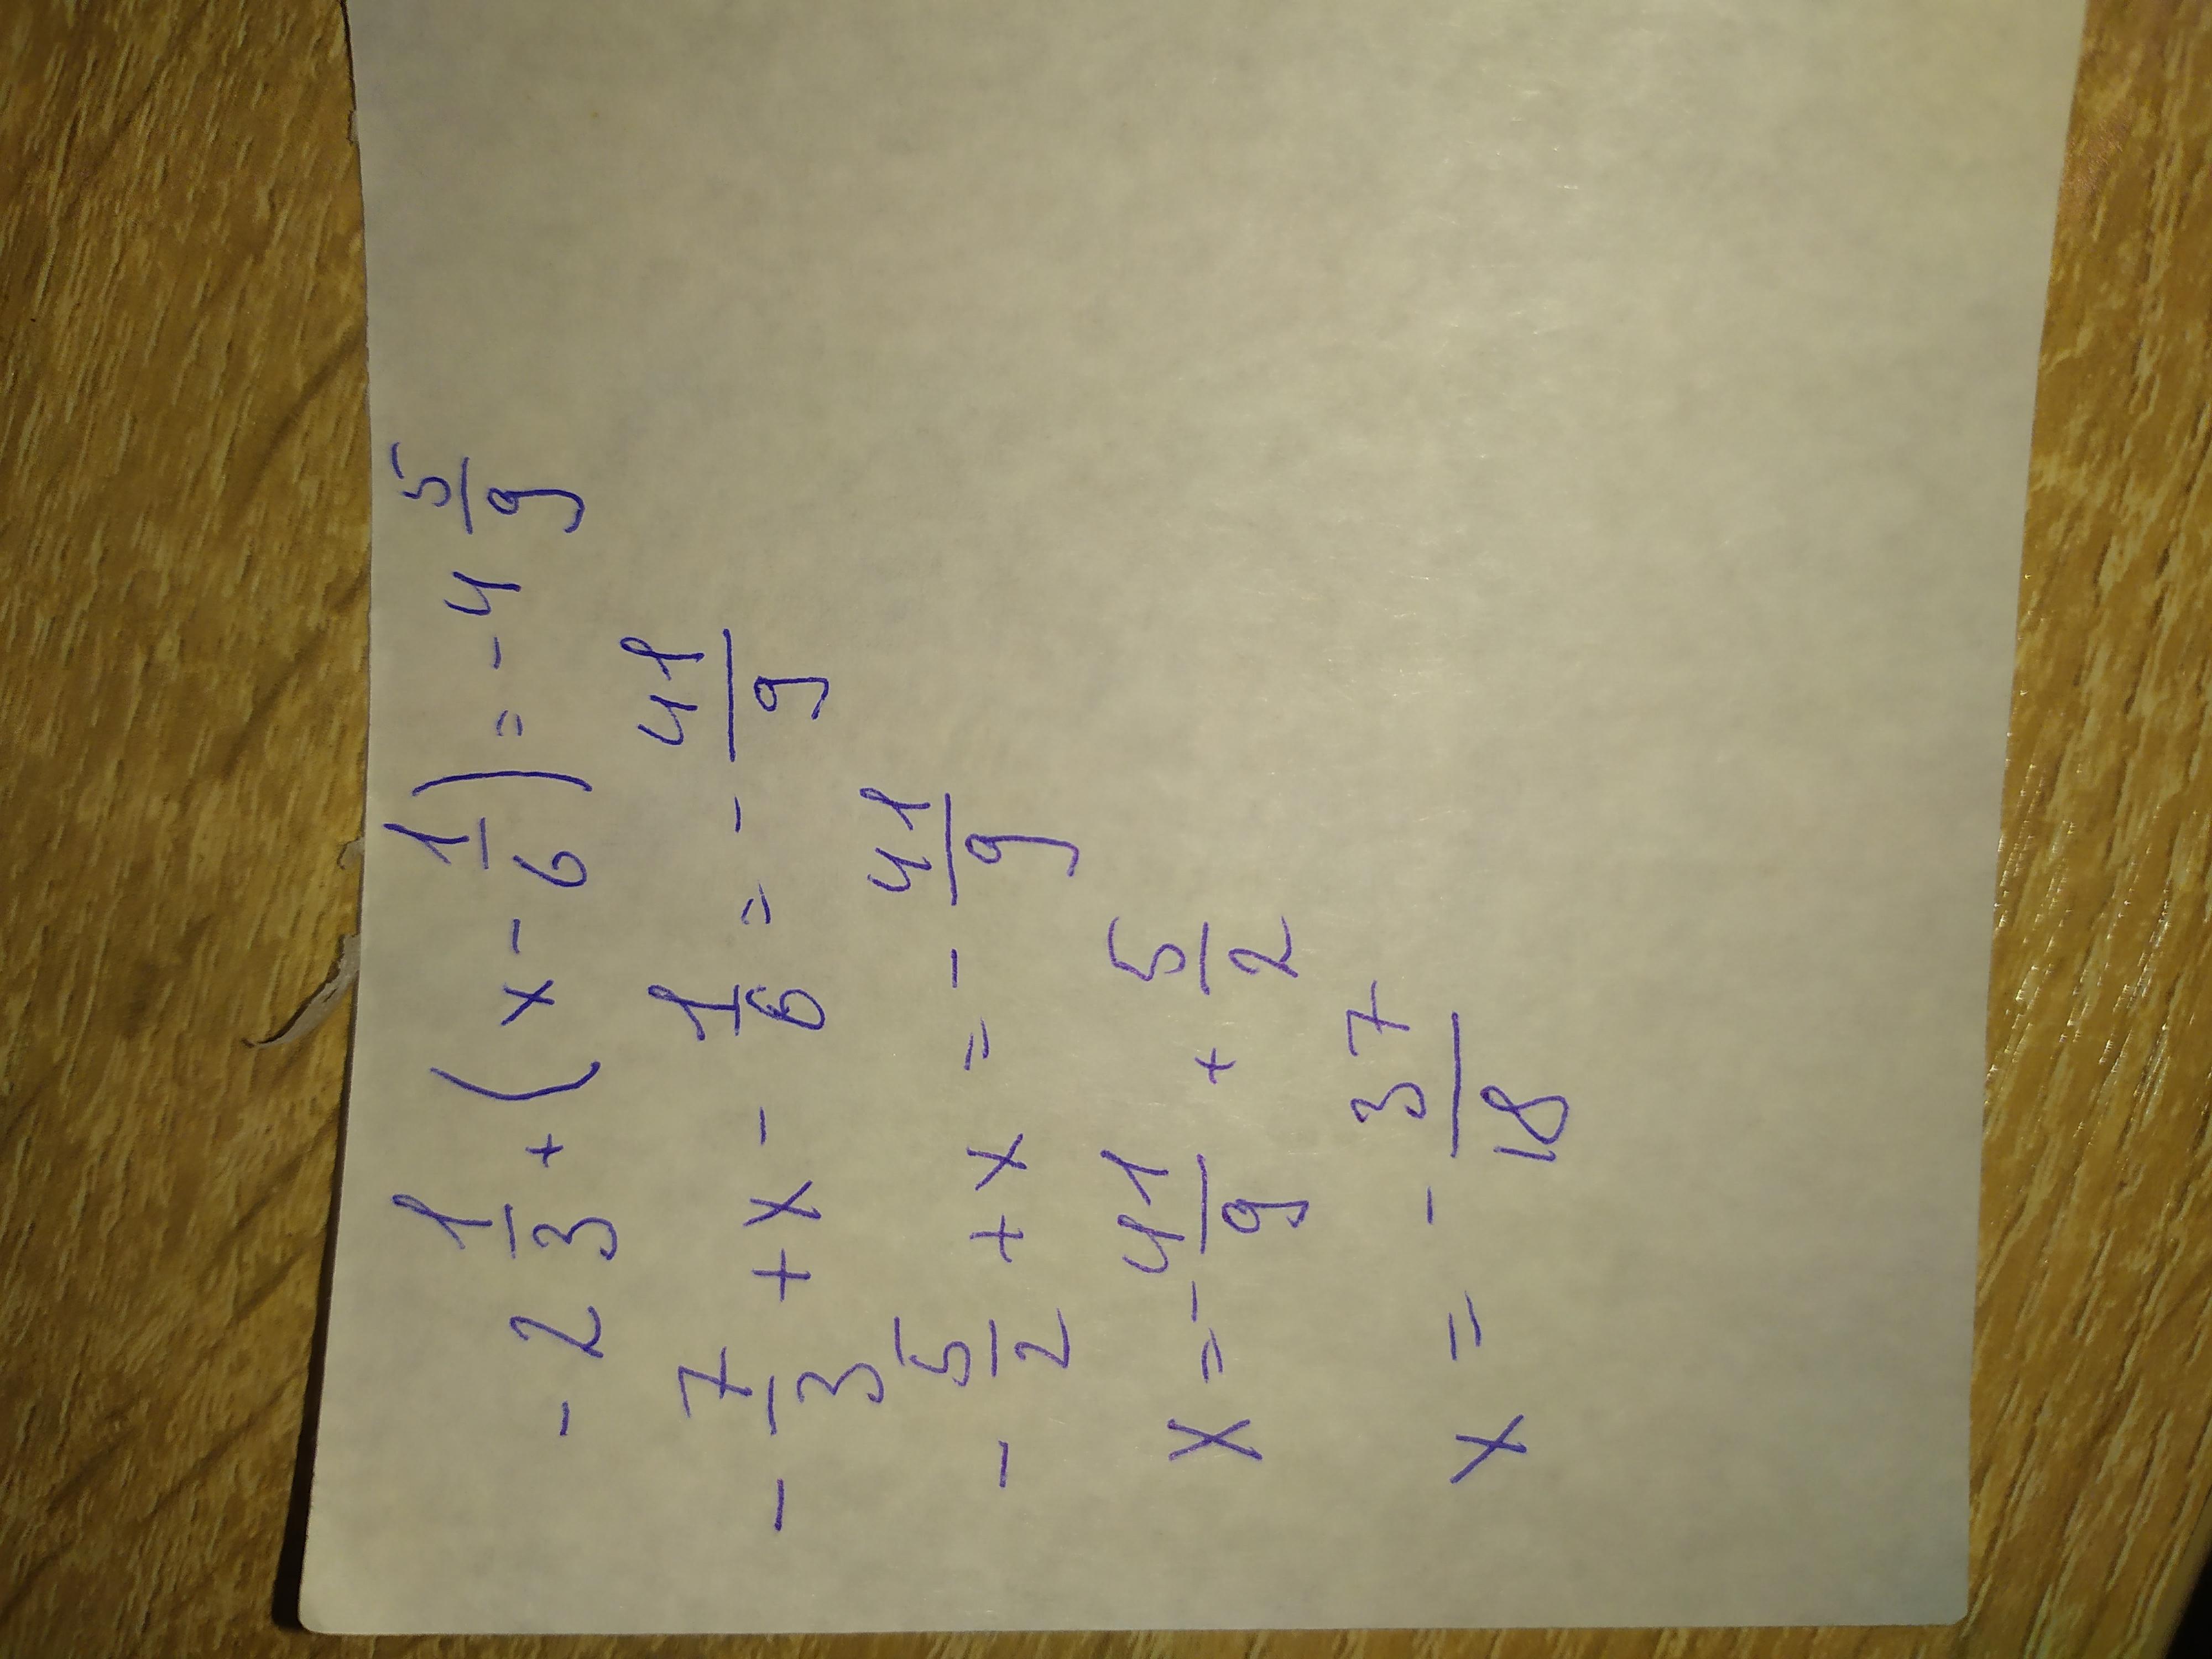 -2 1/3 + (x - 1/6) = -4 5/9
- 7/3 + x - 1/6 = - 41/9
- 5/2 + x = - 41/9
x = - 41/9 + 5/2
x = - 37/18